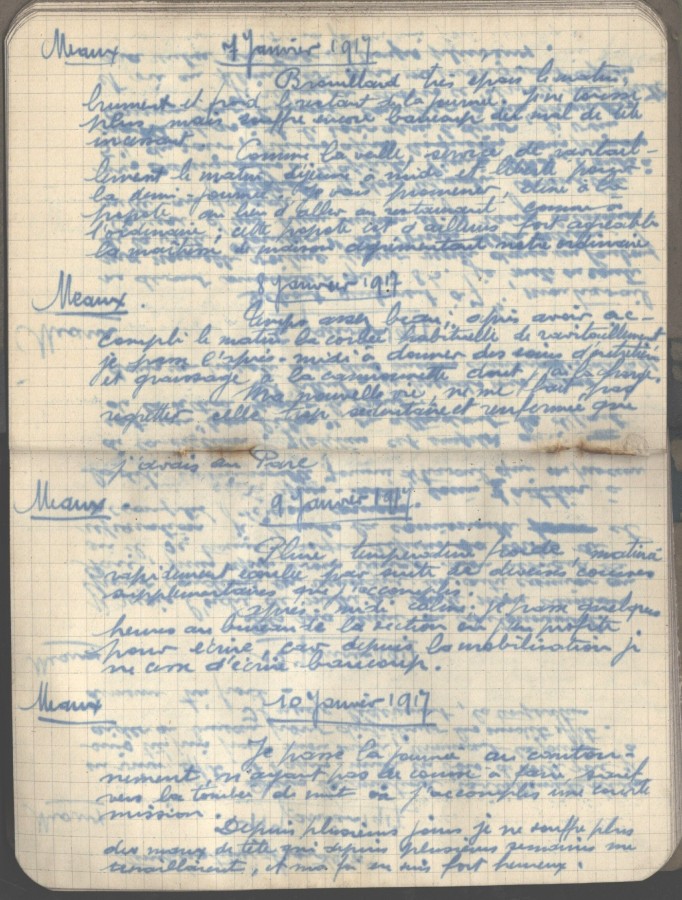 Meaux 7 Janvier 1917
Brouillard très épais le matin,
brument et froid le restant de la journée. Je ne tousse
plus, mais souffre encore beaucoup du mal de tête
incessant
Comme la veille, service de ravitail-
lement le matin, déjeuner à midi et liberté pour
la demi-journée. Je vais promener, dîne à la
popote au lieu d'aller au restaurant comme à
l'ordinaire; cette popote est d'ailleurs fort agréable
la maîtresse de maison agrémentant notre ordinaire
Meaux. 8 Janvier 1917
Temps assez beau; après avoir ac-
compli le matin la corvée habituelle de ravitaillement
je passe l'après midi à donner des soins d'entretien
et graissage à la camionnette dont j'ai la charge.
Ma nouvelle vie, ne me fait pas
regretter celle trop sédentaire et renfermée que
j'avais au Parc
Meaux 9 Janvier 1917.
Pluie température froide, matinée
rapidement écoulée pour suite de diverses courses
supplémentaires que j'accomplis.
après-midi calme. Je passe quelques
heures au bureau de la section où j'en profite
pour écrire, car depuis la mobilisation je
ne cesse d'écrire beaucoup.
Meaux 10 Janvier 1917
Je passe la journée au canton-
nement, n'ayant pas de course à faire sauf
vers la tombée de nuit où j'accomplis une courte
mission.
Depuis plusieurs jours je ne souffre plus
des maux de tête qui depuis plusieurs semaines me
travaillaient, et ma foi en suis fort heureux.